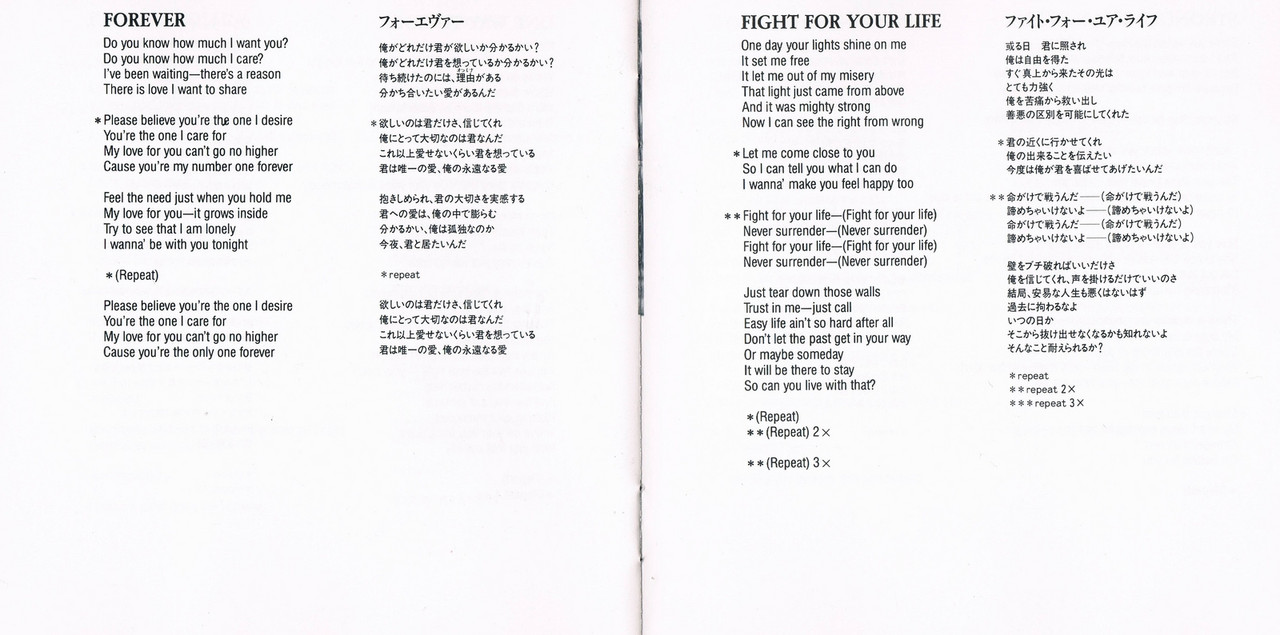 FOREVER
Do you know how much I want you?
Do you know how much I care?
I've been waiting—there's a reason
There is love I want to share
*Please believe you're the one I desire
You're the one I care for
My love for you can't go no higher
Cause you're my number one forever
Feel the need just when you hold me
My love for you—it grows inside
Try to see that I am lonely
I wanna' be with you tonight
*(Repeat)
Please believe you're the one I desire
You're the one I care for
My love for you can't go no higher
Cause you're the only one forever
フォーエヴァー
俺がどれだけ君が欲しいか分かるかい?
俺がどれだけ君を想っているか分かるかい?
待ち続けたのには、理由がある
分かち合いたい愛があるんだ
*欲しいのは君だけさ、信じてくれ
俺にとって大切なのは君なんだ
これ以上愛せないくらい君を想っている
君は唯一の愛、俺の永遠なる愛
抱きしめられ、君の大切さを実感する
君への愛は、俺の中で膨らむ
分かるかい、俺は孤独なのか
今夜、君と居たいんだ
*repeat
欲しいのは君だけさ、信じてくれ
俺にとって大切なのは君なんだ
これ以上愛せないくらい君を想っている
君は唯一の愛、俺の永遠なる愛
FIGHT FOR YOUR LIFE
One day your lights shine on me
It set me free
It let me out of my misery
That light just came from above
And it was mighty strong
Now I can see the right from wrong
*Let me come close to you
So I can tell you what I can do
I wanna' make you feel happy too
**Fight for your life—(Fight for your life)
Never surrender—(Never surrender)
Fight for your life—(Fight for your life)
Never surrender—(Never surrender)
Just tear down those walls
Trust in me—just call
Easy life ain't so hard after all
Don't let the past get in your way
Or maybe someday
It will be there to stay
So can you live with that?
*(Repeat)
**(Repeat) 2×
**(Repeat) 3×
ファイト・フォー・ユア・ライフ
或る日　君に照され
俺は自由を得た
すぐ真上から来たその光は
とても力強く
俺を苦痛から救い出し
善悪の区別を可能にしてくれた
*君の近くに行かせてくれ
俺の出来ることを伝えたい
今度は俺が君を喜ばせてあげたいんだ
**命がけで戦うんだ——(命がけで戦うんだ)
諦めちゃいけないよ——(諦めちゃいけないよ)
命がけで戦うんだ——(命がけで戦うんだ)
諦めちゃいけないよ——(諦めちゃいけないよ)
壁をブチ破ればいいだけさ
俺を信じてくれ、声を掛けるだけでいいのさ
結局、安易な人生も悪くはないはず
過去に拘わるなよ
いつの日か
そこから抜け出せなくなるかも知れないよ
そんなこと耐えられるか?
*repeat
**repeat 2×
***repeat 3×